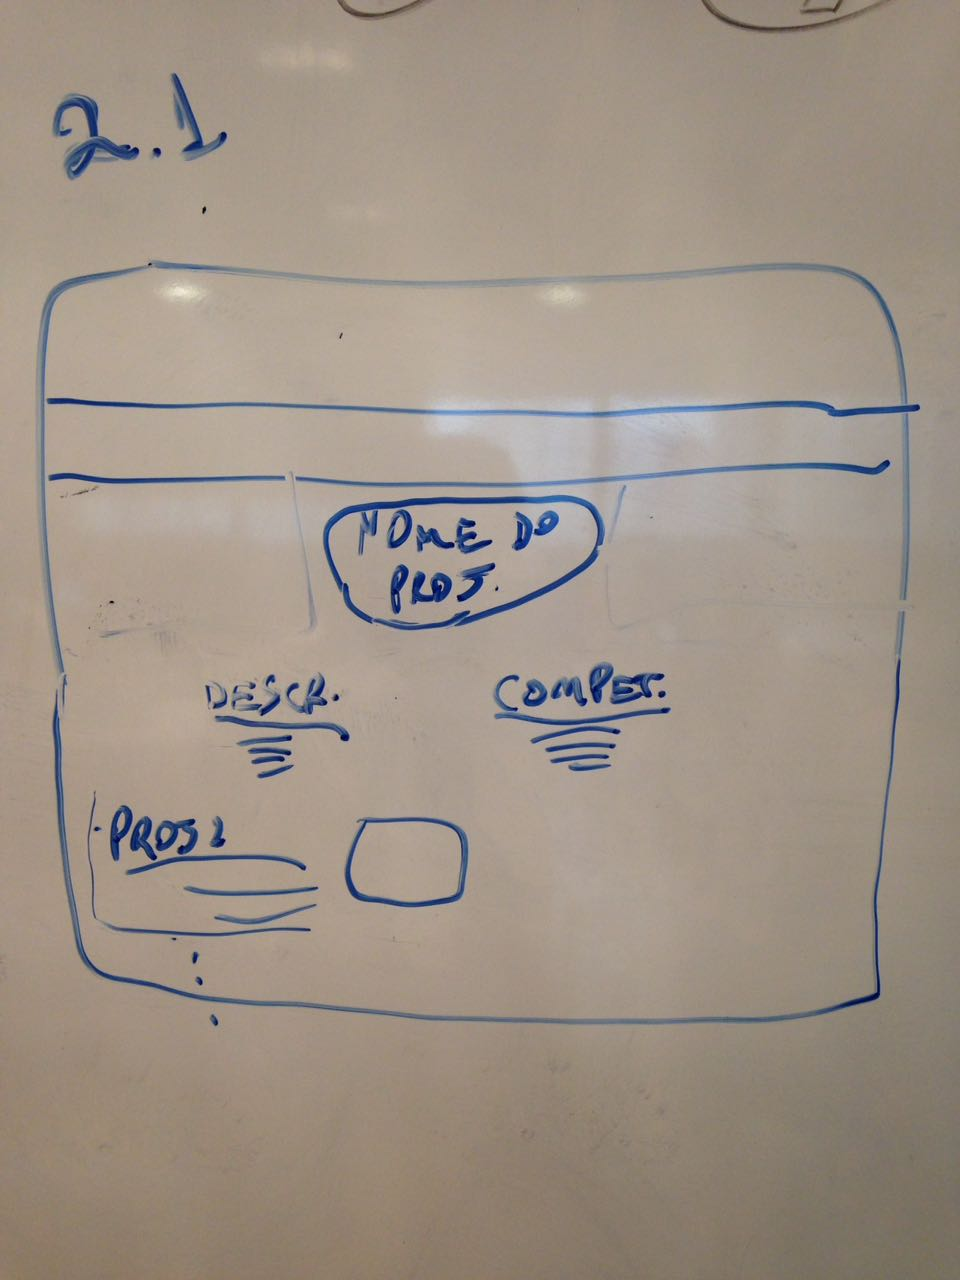 2.1
NOME DO
PROJ.
DESCR.
COMPET.
PROJ 1